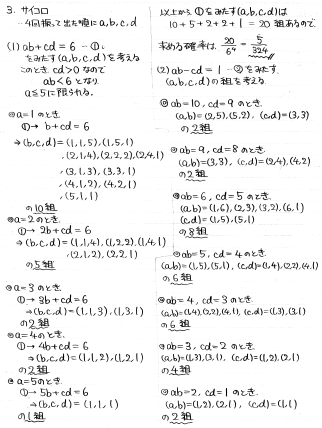 3. サイコロ
→4回振って出た順にa,b,c,d
(1) ab+cd=6 …①
をみたす(a,b,c,d)を考える
このとき cd>0なので
ab<6となり
a≦5に限られる。
◎a=1のとき
①→ b+cd=6
⇒(b,c,d)=(1,1,5),(1,5,1)
,(2,1,4),(2,2,2),(2,4,1)
,(3,1,3),(3,3,1)
,(4,1,2),(4,2,1)
,(5,1,1)
の10組
◎a=2のとき
①→ 2b+cd=6
⇒(b,c,d)=(1,1,4),(1,2,2),(1,4,1)
,(2,1,2),(2,2,1)
の5組
◎a=3のとき
①→3b+cd=6
⇒(b,c,d)=(1,1,3),(1,3,1)
の2組
◎a=4のとき
①→4b+cd=6
⇒(b,c,d)=(1,1,2),(1,2,1)
の2組
◎a=5のとき
①→5b+cd=6
⇒(b,c,d)=(1,1,1)
の1組
以上から①をみたす(a,b,c,d)は
10+5+2+2+1=20組あるので
求める確率は 20/6⁴=5/324
(2) ab-cd=1 …②をみたす
(a,b,c,d)の組を考える。
◎ab=10, cd=9のとき
(a,b)=(2,5),(5,2), (c,d)=(3,3)
の2組
◎ab=9, cd=8のとき
(a,b)=(3,3), (c,d)=(2,4),(4,2)
の2組
◎ab=6, cd=5のとき
(a,b)=(1,6),(2,3),(3,2),(6,1)
(c,d)=(1,5),(5,1)
の8組
◎ab=5, cd=4のとき
(a,b)=(1,5),(5,1), (c,d)=(1,4),(2,2),(4,1)
の6組
◎ab=4, cd=3のとき
(a,b)=(1,4),(2,2),(4,1), (c,d)=(1,3),(3,1)
の6組
◎ab=3, cd=2のとき
(a,b)=(1,3),(3,1), (c,d)=(1,2),(2,1)
の4組
◎ab=2, cd=1のとき
(a,b)=(1,2),(2,1), (c,d)=(1,1)
の2組